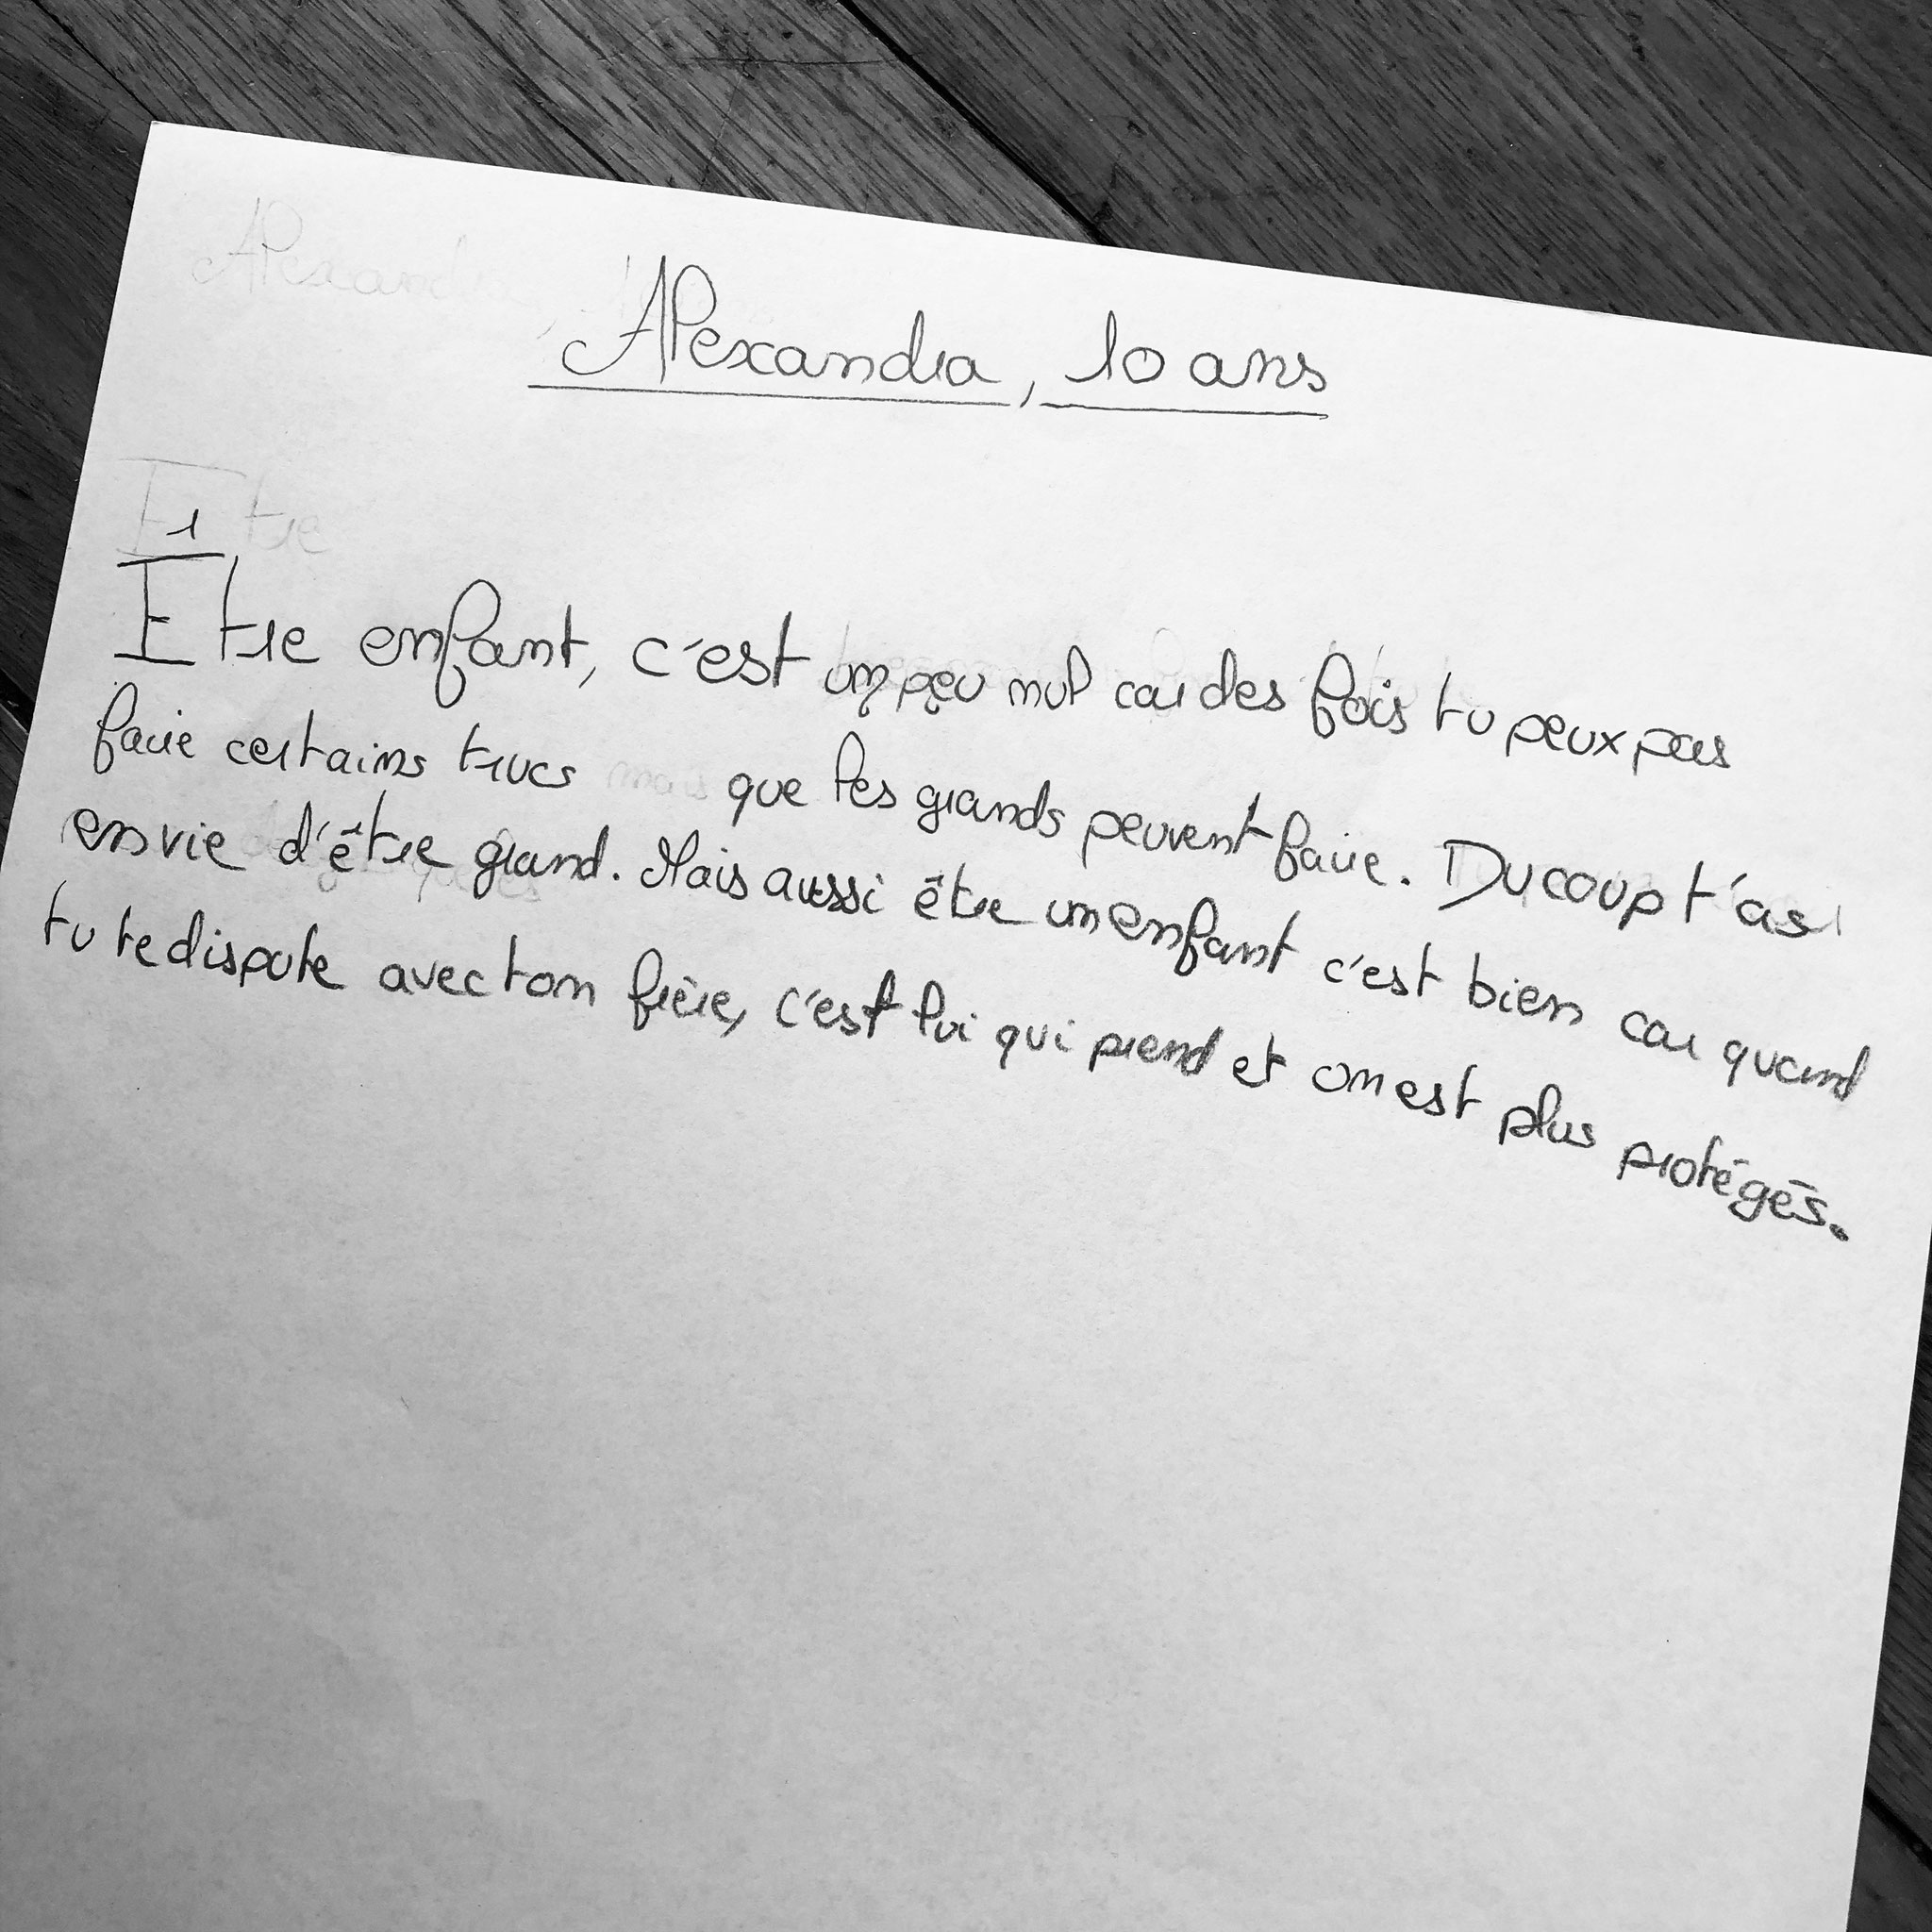 Alexandra, 10 ans
Être enfant, c'est un peu nul car des fois tu peux pas
faire certains trucs que les grands peuvent faire. Du coup t'as
envie d'être grand. Mais aussi être un enfant c'est bien car quand
tu te dispute avec ton frère, c'est lui qui prend et on est plus protégés.